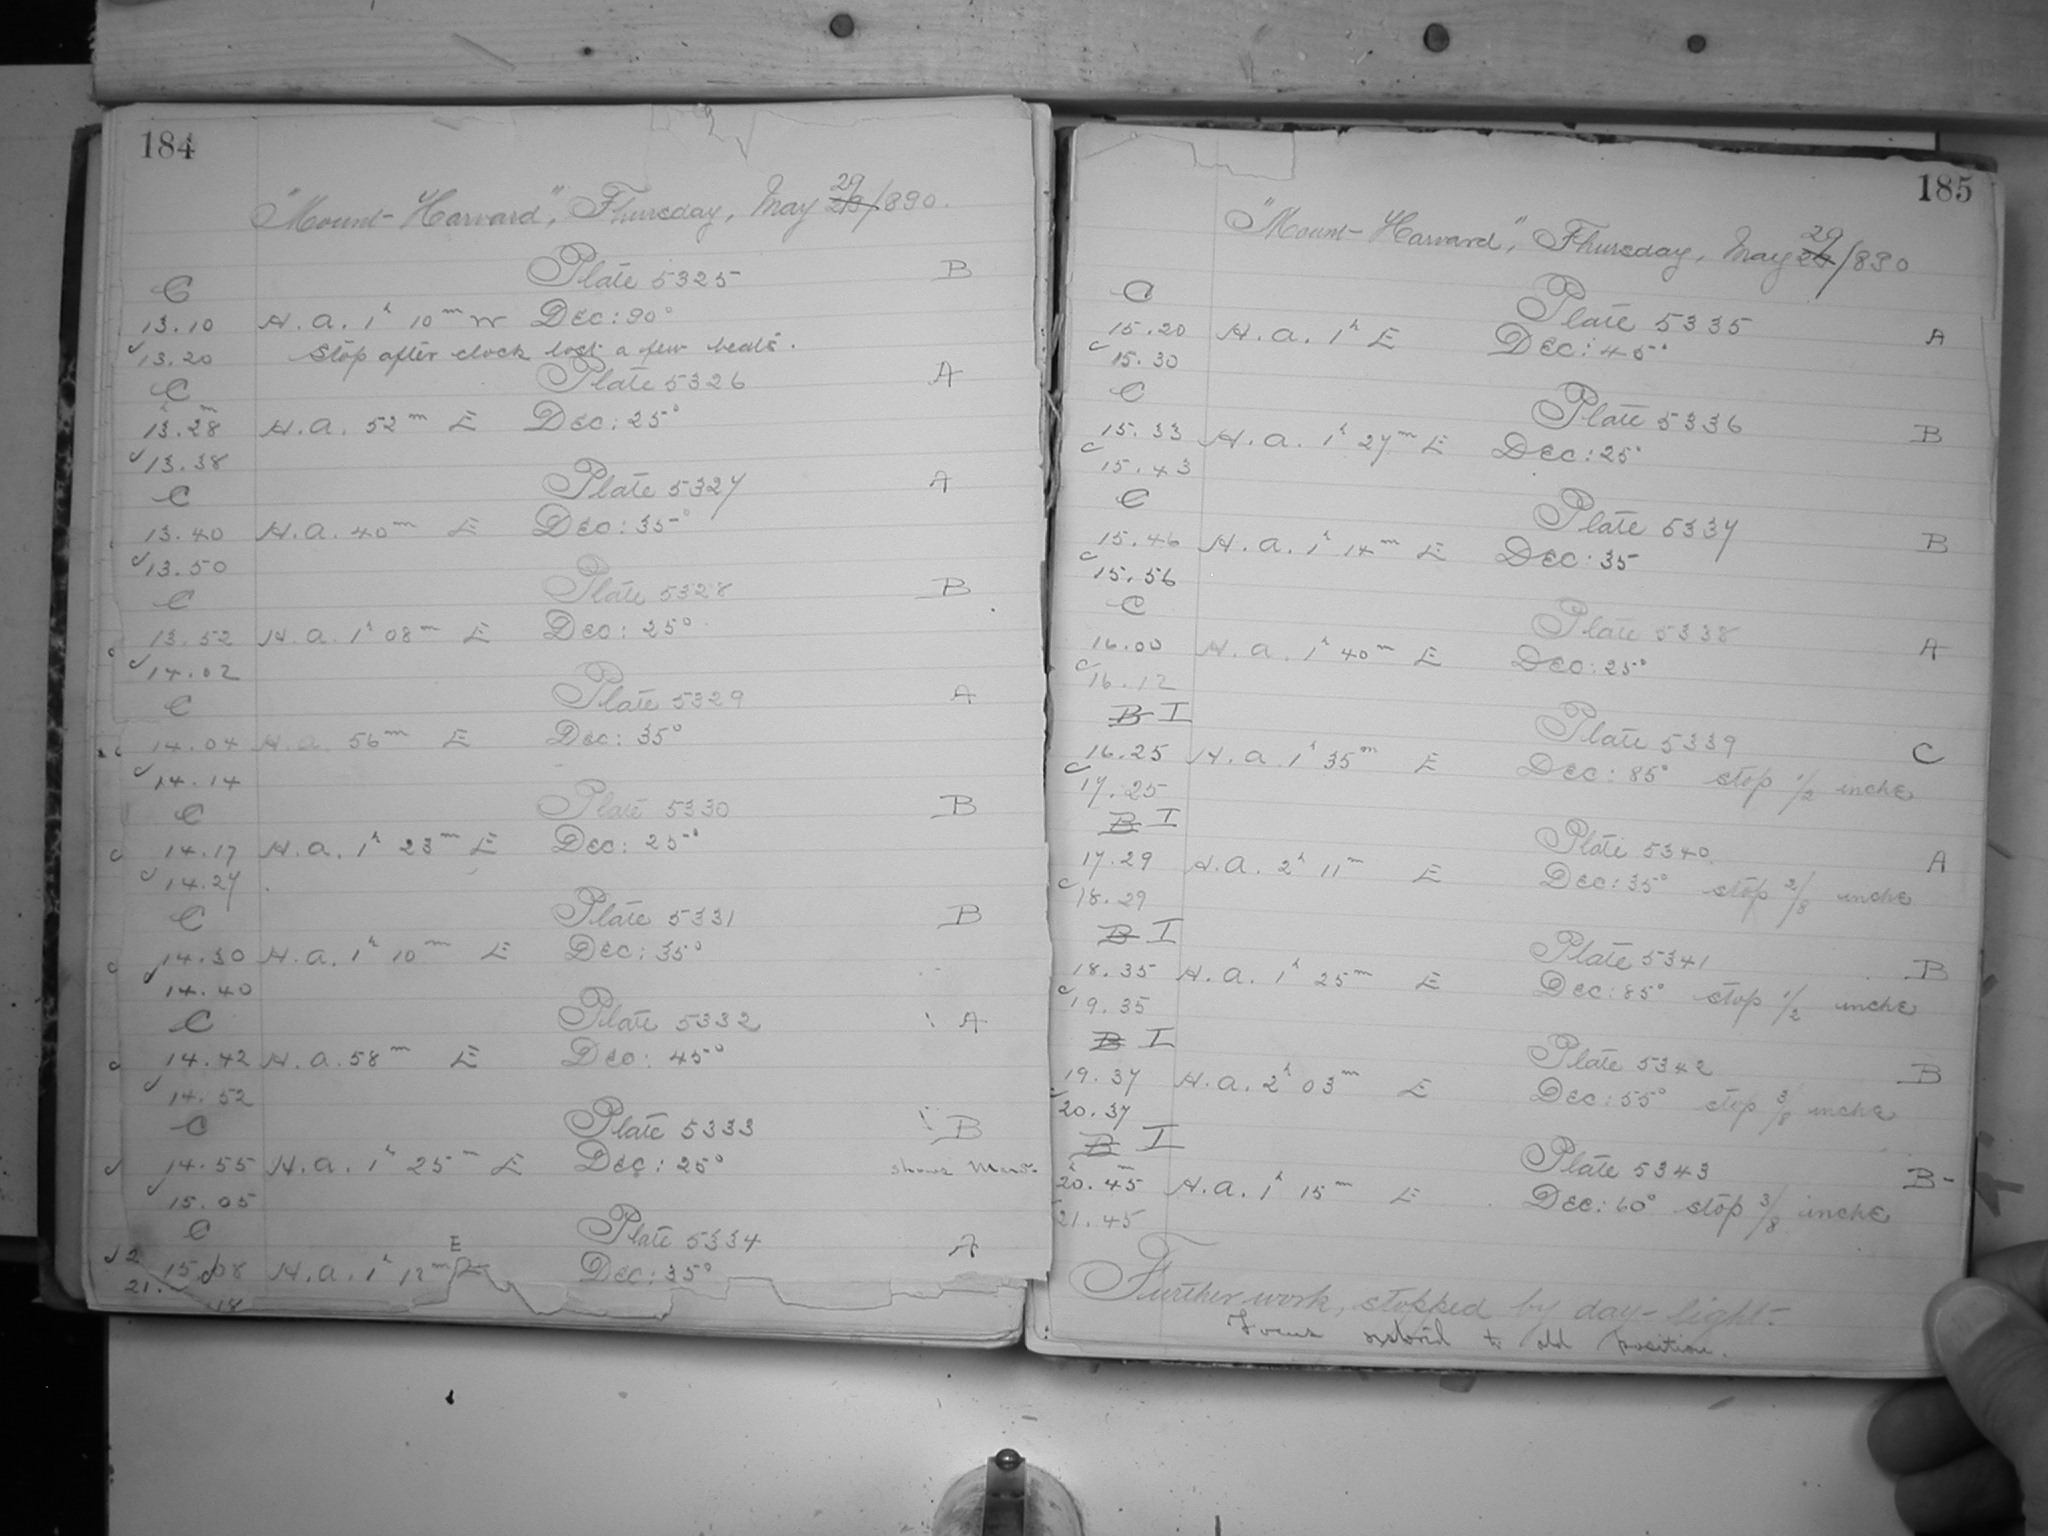 184
"Mount-Harvard", Thursday, May 29 1890.
C Plate 5325 B
13.10 H.a. 1h 10m W Dec: 90°
13.20 Stop after clock lost a few beats.
C Plate 5326 A
13.28 H.a. 52m E Dec: 25°
13.38
C Plate 5327 A
13.40 H.a. 40m E Dec: 35°
13.50
C Plate 5328 B
13.52 H.a. 1h 08m E Dec: 25°
14.02
C Plate 5329 A
14.04 H.a. 56m E Dec: 35°
14.14
C Plate 5330 B
14.17 H.a. 1h 23m E Dec: 25°
14.27
C Plate 5331 B
14.30 H.a. 1h 10m E Dec: 35°
14.40
C Plate 5332 A
14.42 H.a. 58m E Dec: 45°
14.52
C Plate 5333 B
14.55 H.a. 1h 25m E Dec: 25° shows
15.05
C Plate 5334 A
15.08 H.a. 1h 12m E Dec: 35°
18
185
"Mount-Harvard", Thursday, May 29 1890
C Plate 5335 A
15.20 H.a. 1h E Dec: 45°
15.30
C Plate 5336 B
15.33 H.a. 1h 27m E Dec: 25°
15.43
C Plate 5337 B
15.46 H.a. 1h 14m E Dec: 35
15.56
C Plate 5338 A
16.00 H.a. 1h 40m E Dec: 25°
16.12
B I Plate 5339 C
16.25 H.a. 1h 35m E Dec: 85° stop 1/2 inche
17.25
B I Plate 5340 A
17.29 H.a. 2h 11m E Dec: 35° stop 2/8 inche
18.29
B I Plate 5341 B
18.35 H.a. 1h 25m E Dec: 85° stop 1/2 inche
19.35
B I Plate 5342 B
19.37 H.a. 2h 03m E Dec: 55° stop 3/8 inche
20.37
B I Plate 5343 B-
20.45 H.a. 1h 15m E Dec: 60° stop 3/8 inche
21.45
Further work, stopped by day-light-
Focus restor'd to old position.